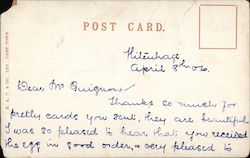 POST CARD.
Uitenhage
April 8th 06.
Dear Mr Quignon
Thanks so much for
pretty cards you sent, they are beautiful
I was so pleased to hear that you received
the egg in good order, & very pleased to